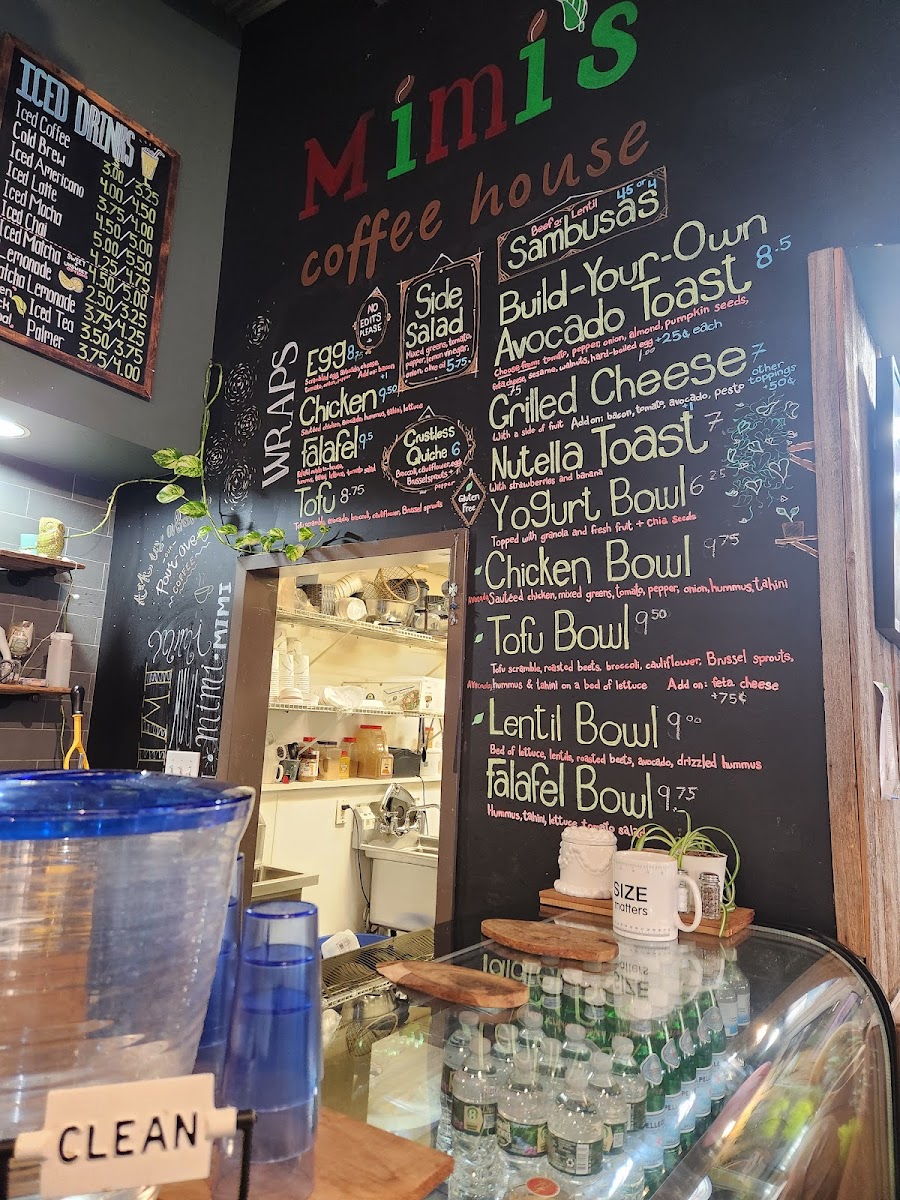 ICED DRINKS
Iced Coffee 3.00/3.25
Cold Brew 4.00/4.50
Iced Americano 3.75/4.00
Iced Latte 4.50/5.00
Iced Mocha 5.00/5.50
Iced Chai 4.25/4.75
Iced Matcha
Lemonade 2.50/3.00
Matcha Lemonade 3.75/4.25
Iced Tea 3.50/3.75
Palmer 3.75/4.00
Mimi's
coffee house
Beef or Lentil 45 or 4
Sambusas
NO
EDITS
PLEASE
Side
Salad
Mixed greens, tomato,
pepper, lemon vinegar,
onion, olive oil 5.75
WRAPS
Egg 8.75
Scrambled egg, avocado, cheese
Add on: bacon +1
Chicken 9.50
Sautéed chicken, avocado, hummus, tahini, lettuce
Falafel 9.5
hummus, tahini, lettuce, tomato salad
Tofu 8.75
Tofu scramble, avocado, broccoli, cauliflower, Brussel sprouts
Crustless
Quiche 6
Broccoli, cauliflower, egg
Brussel sprouts +
pepper
Gluten
Free
Build-Your-Own
Avocado Toast 8.5
Choose from: tomato, pepper, onion, almond, pumpkin seeds,
feta cheese, sesame, walnuts, hard-boiled egg +25¢ each
.75 1.00
Grilled Cheese 7
With a side of fruit Add on: bacon, tomato, avocado, pesto
+1
other
toppings
+50¢
Nutella Toast 7
With strawberries and banana
Yogurt Bowl 6.25
Topped with granola and fresh fruit + chia seeds
Chicken Bowl 9.75
Avocado, Sautéed chicken, mixed greens, tomato, pepper, onion, hummus, tahini
Tofu Bowl 9.50
Tofu scramble, roasted beets, broccoli, cauliflower, Brussel sprouts,
Avocado, hummus & tahini on a bed of lettuce Add on: feta cheese
+75¢
Lentil Bowl 9.00
Bed of lettuce, lentils, roasted beets, avocado, drizzled hummus
Falafel Bowl 9.75
Hummus, tahini, lettuce, tomato salad
Pour-over
COFFEE
MIMI
SIZE
matters
CLEAN